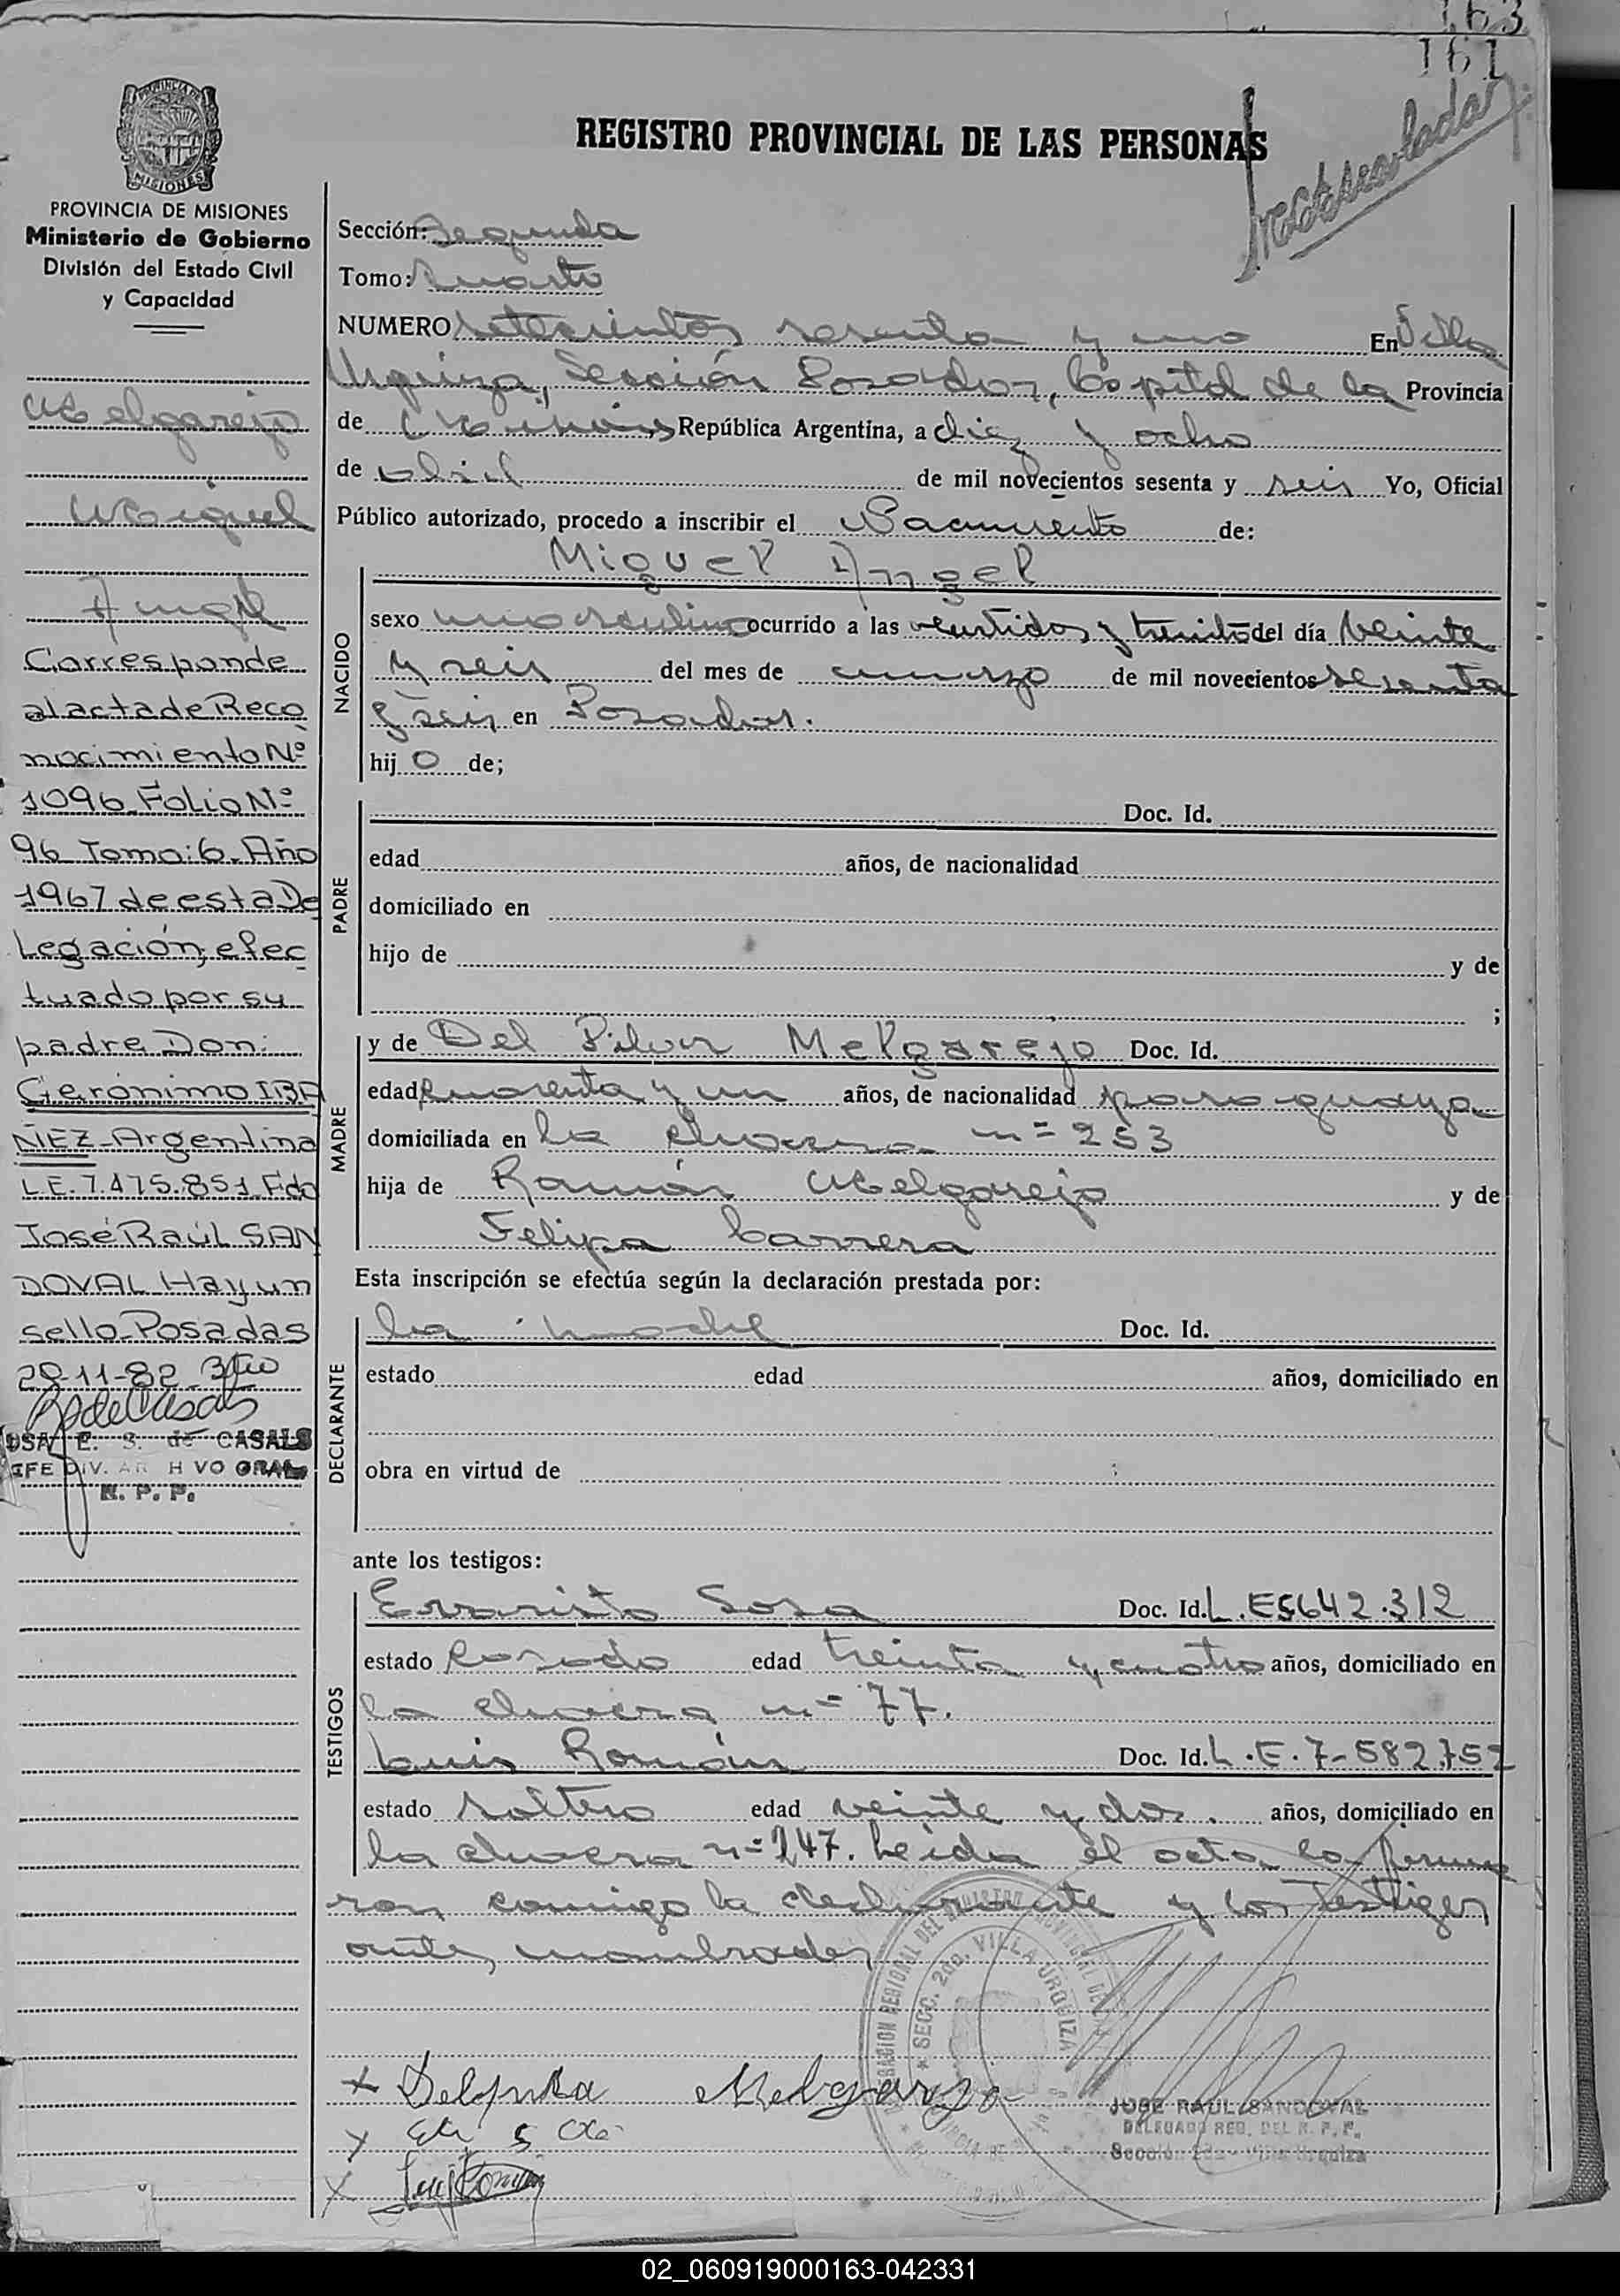 163
161
Matriculado
REGISTRO PROVINCIAL DE LAS PERSONAS
PROVINCIA DE MISIONES
Ministerio de Gobierno
División del Estado Civil
y Capacidad
Melgarejo
Miguel
Angel
Corresponde
al acta de Reco
nocimiento Nº
1096 Folio Nº
96 Tomo: 6. Año
1967 de esta De
legación, efec
tuado por su
padre Don:
Gerónimo IBA
ÑEZ - Argentino
L.E. 7.475.851 Fdo
José Raúl SAN
DOVAL Hay un
sello - Posadas
29-11-82
E. S. de CASALS
R. P. P.
Sección: Segunda
Tomo: Cuarto
NUMERO setecientos sesenta y uno En Villa
Urquiza, Sección Posadas, Capital de la Provincia
de Misiones República Argentina, a diez y ocho
de abril de mil novecientos sesenta y seis Yo, Oficial
Público autorizado, procedo a inscribir el Nacimiento de:
NACIDO
Miguel Angel
sexo masculino ocurrido a las veintidos y treinta del día Veinte
y seis del mes de marzo de mil novecientos sesenta
y seis en Posadas.
hij o de;
PADRE
Doc. Id.
edad años, de nacionalidad
domiciliado en
hijo de y de
;
MADRE
y de Del Pilar Melgarejo Doc. Id.
edad cuarenta y un años, de nacionalidad paraguaya
domiciliada en la chacra nº 253
hija de Ramón Melgarejo y de
Felipa Carrera
Esta inscripción se efectúa según la declaración prestada por:
DECLARANTE
la madre Doc. Id.
estado edad años, domiciliado en
obra en virtud de
ante los testigos:
TESTIGOS
Evaristo Sosa Doc. Id. L.E 5642.312
estado casado edad treinta y cuatro años, domiciliado en
la chacra nº 77.
Luis Román Doc. Id. L.E. 7-582.752
estado soltero edad veinte y dos. años, domiciliado en
la chacra nº 147. Leída el acta la firma
ron conmigo la declarante y los testigos
antes nombrados
SECC. 2da. VILLA URQUIZA
x Delpilar Melgarejo
x
x Luis Roman
JOSE RAUL SANDOVAL
DELEGADO REG. DEL R. P. P.
Sección 2da - Villa Urquiza
02_060919000163-042331